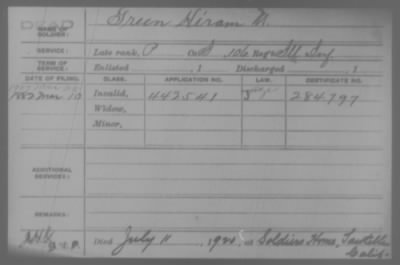 DEAD
NAME OF SOLDIER: Green Hiram M.
SERVICE: Late rank, P Co. 106 Reg't Ill Inf.
TERM OF SERVICE: Enlisted , 1 Discharged , 1
DATE OF FILING. CLASS. APPLICATION NO. LAW. CERTIFICATE NO.
1882 Mar 10 Invalid, 442541 284797
Widow,
Minor,
ADDITIONAL SERVICES:
REMARKS:
Died July 11, 192 at Soldiers Home, Sawtelle
Calif.